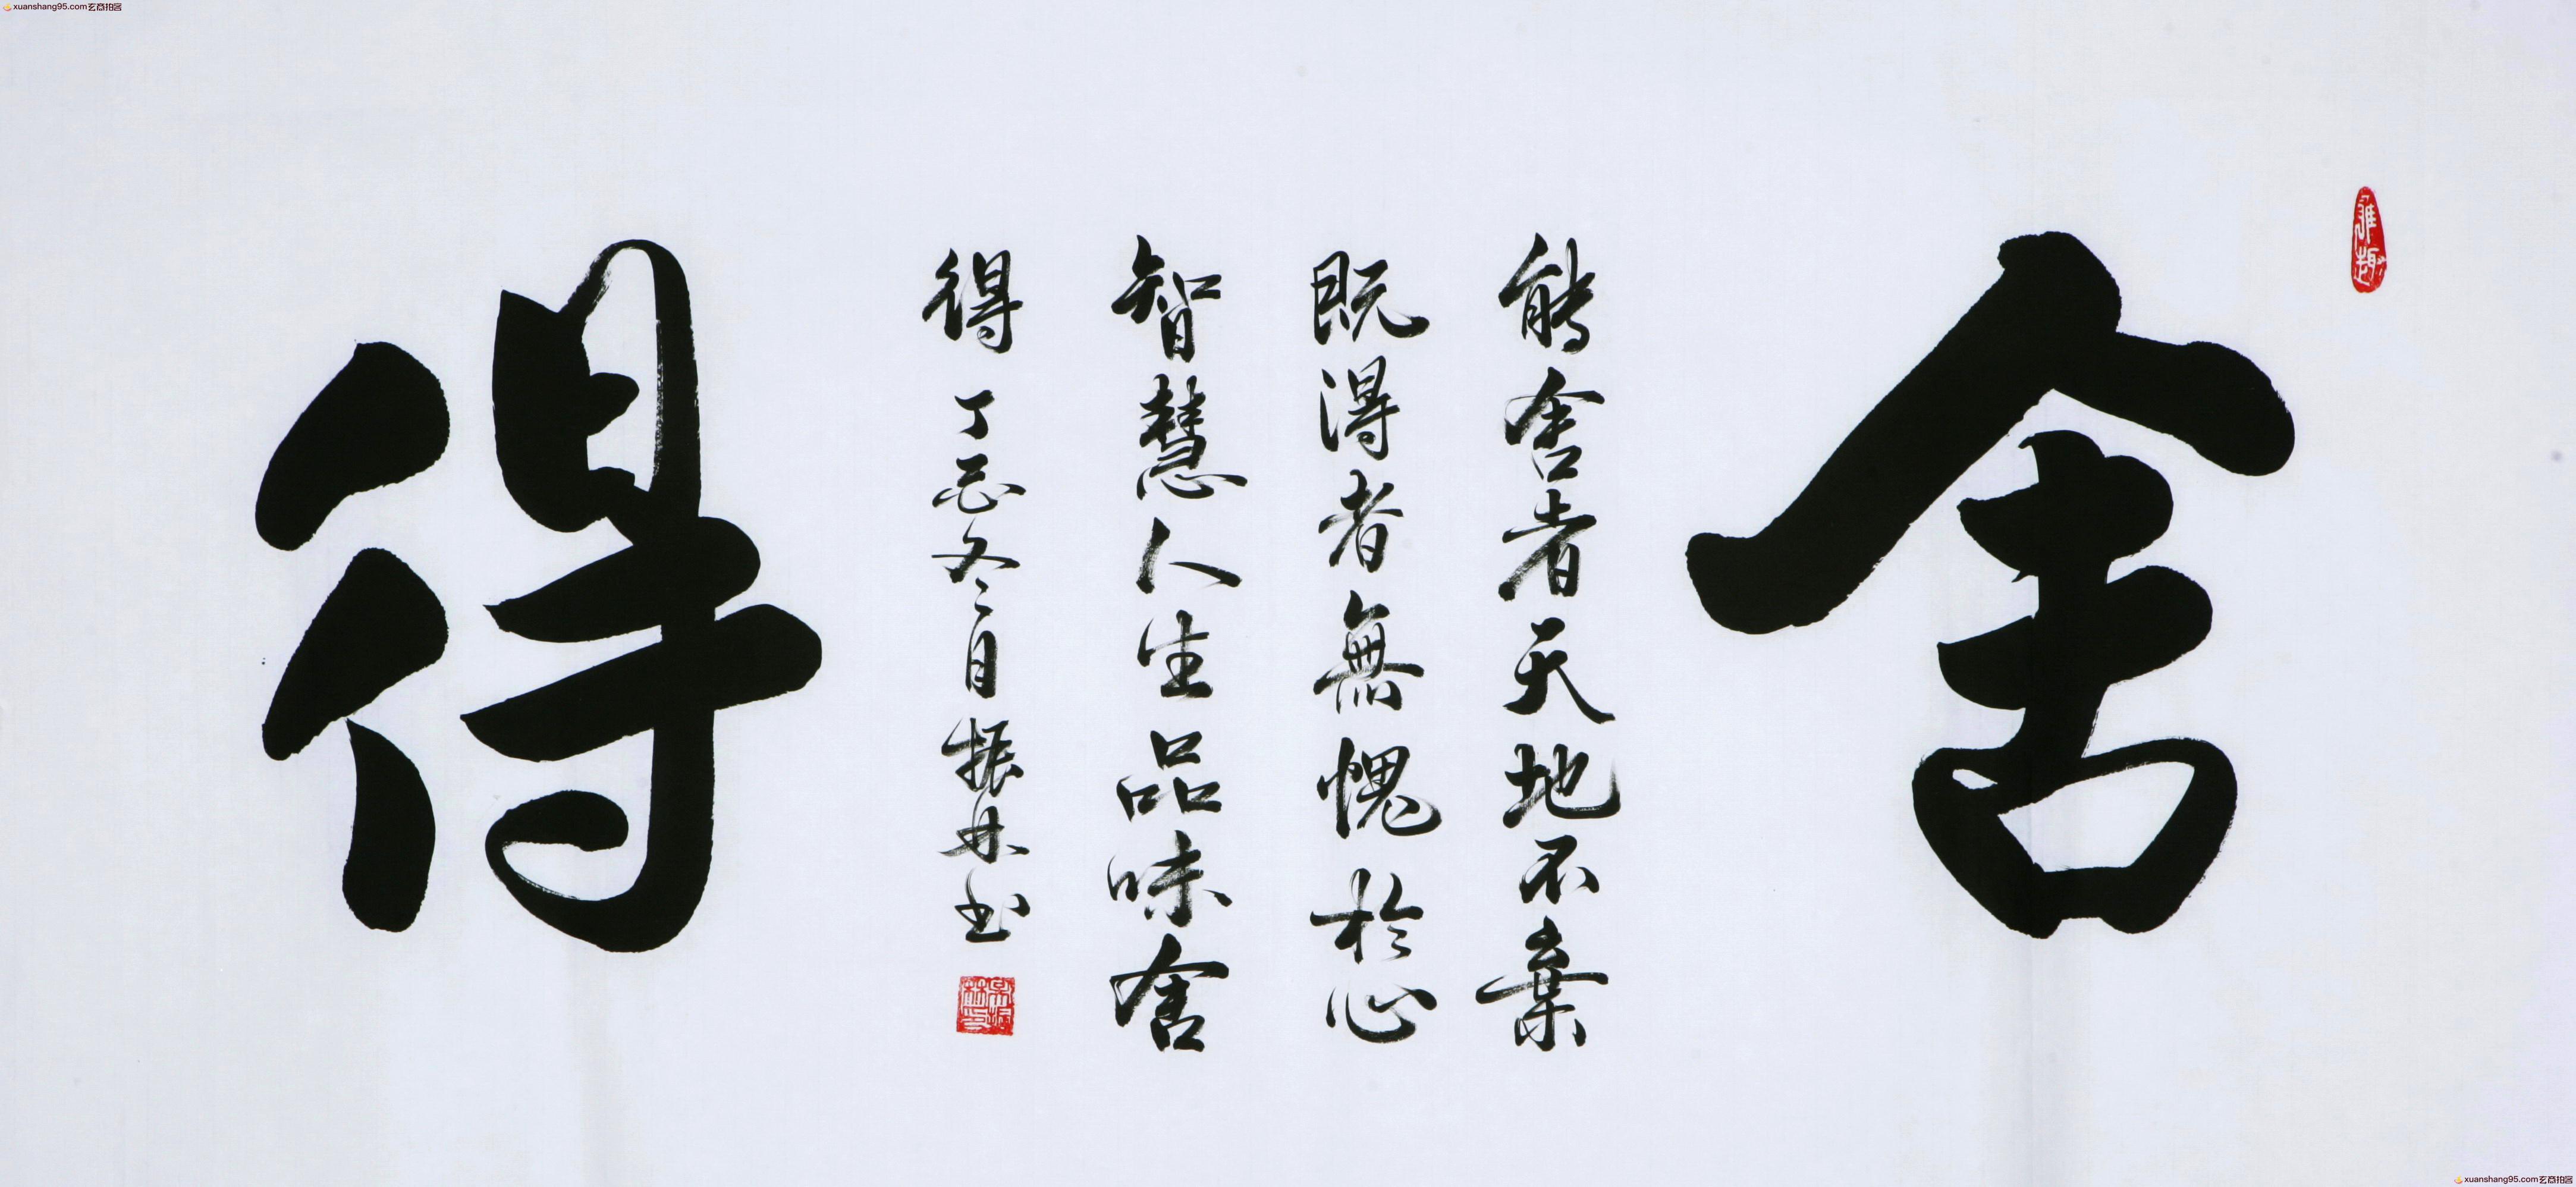 xuanshang95.com玄商拍客
雅趣
舍
能舍者天地不棄
既得者無愧於心
智慧人生品味舍
得 丁冬月振林书
得
xuanshang95.com玄商拍客